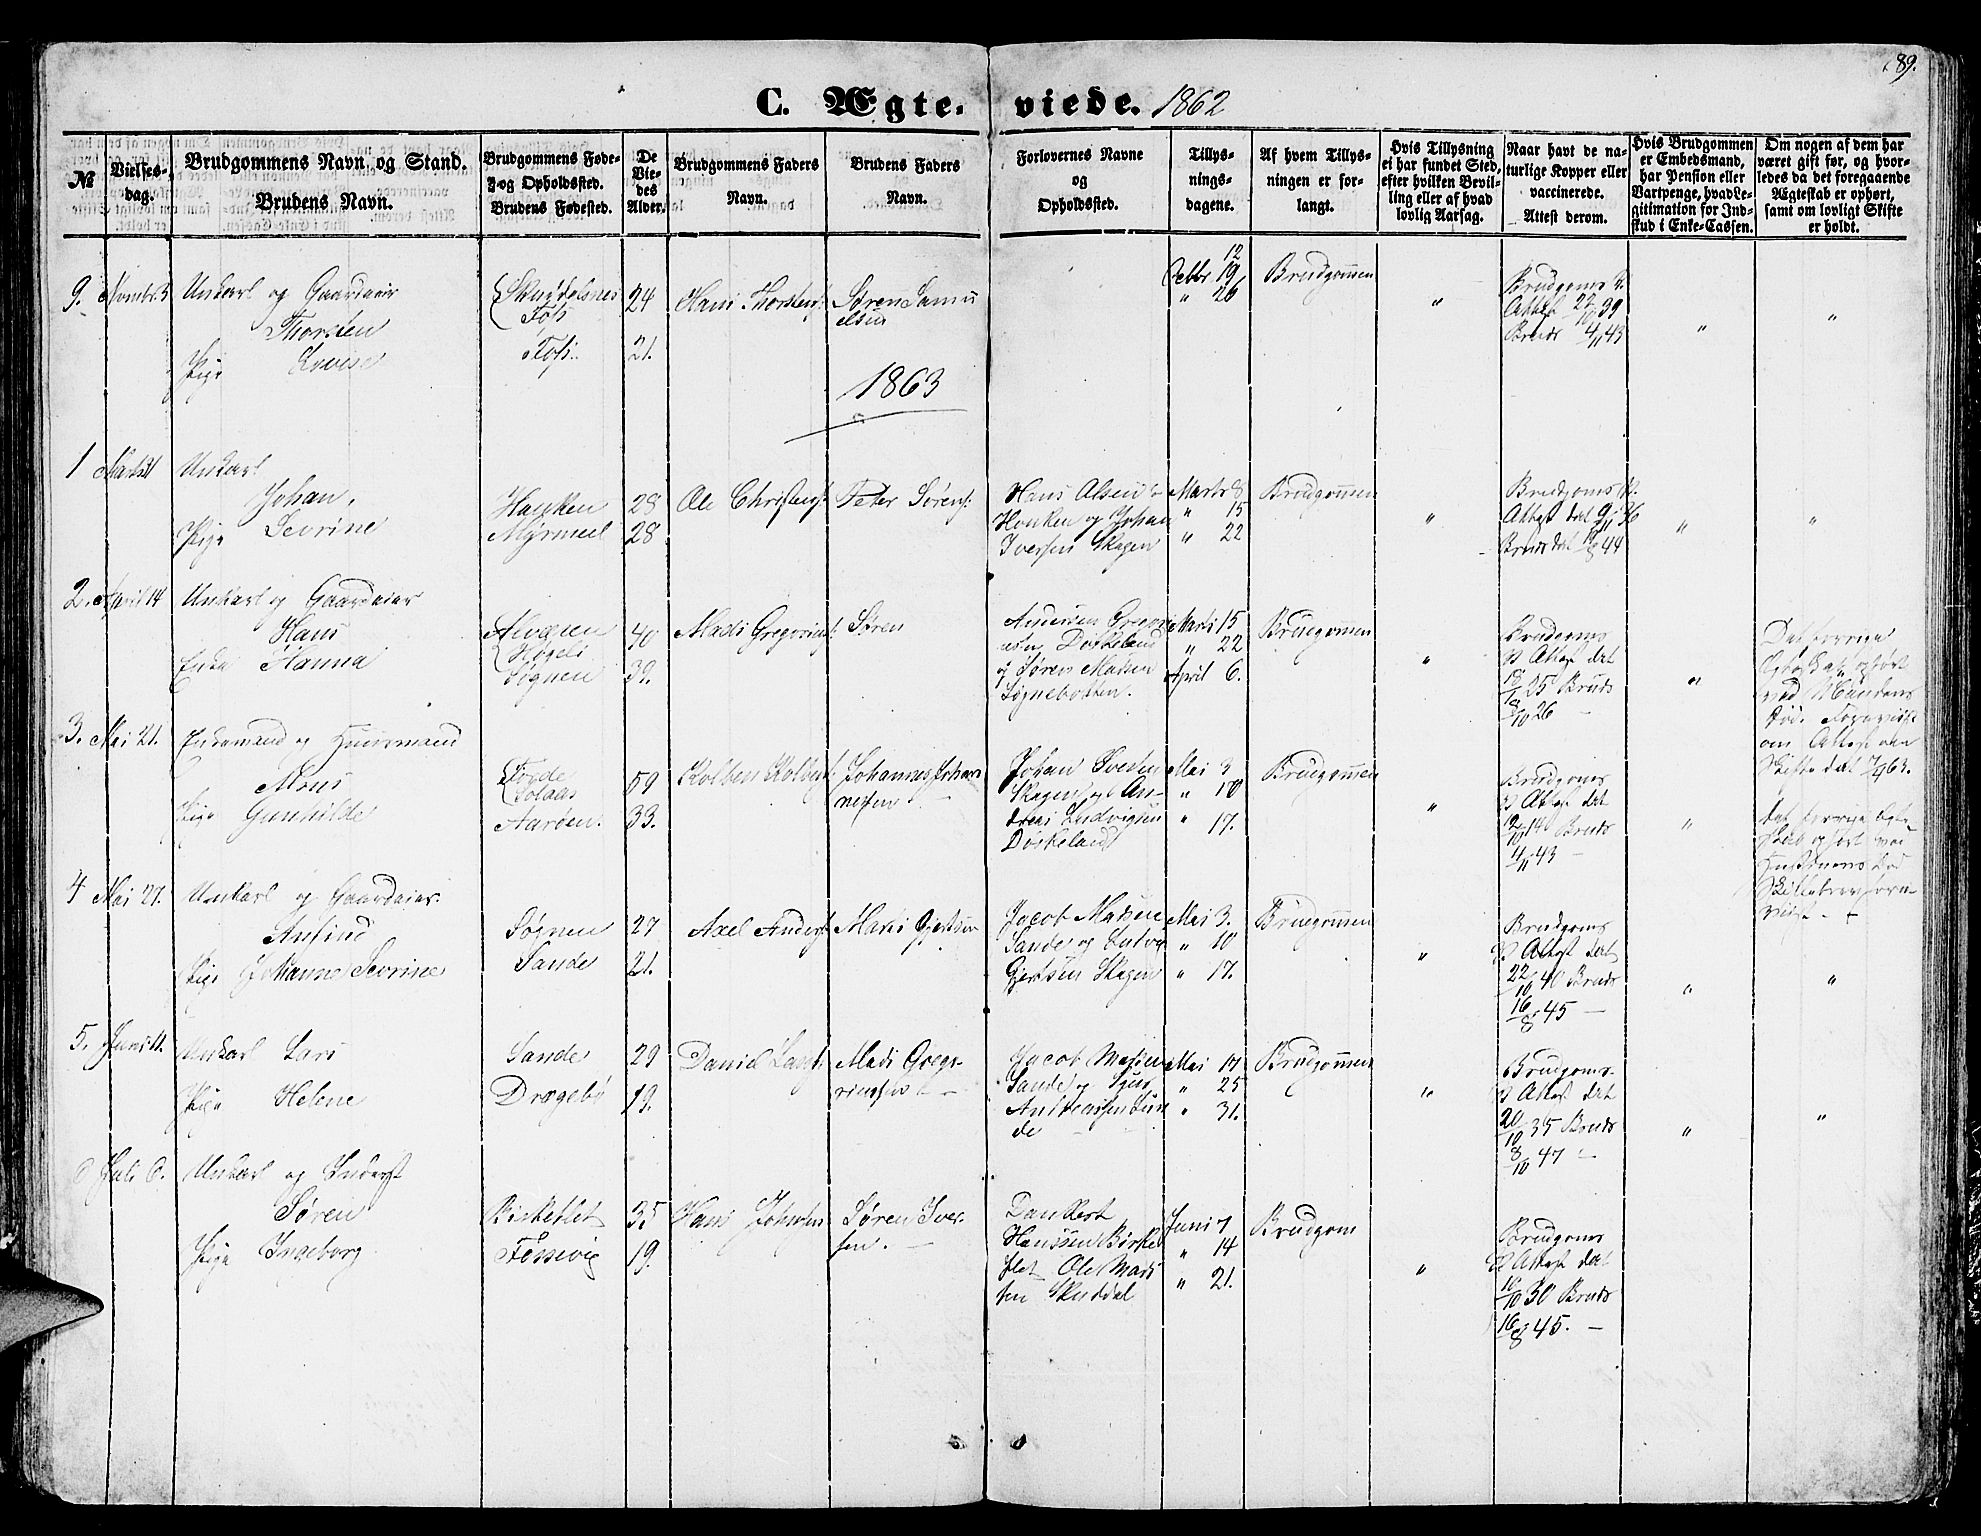 89.
C. Ægteviede. 1862
№
Vielsesdag.
Brudgommens Navn, og Stand.
Brudens Navn.
Brudgommens Føde- og Opholdssted.
Brudens Fødested.
De Viedes Alder.
Brudgommens Faders Navn.
Brudens Faders Navn.
Forlovernes Navne og Opholdssted.
Tillysningsdagene.
Af hvem Tillysningen er forlangt.
Hvis Tillysning ei har fundet Sted, efter hvilken Bevilling eller af hvad lovlig Aarsag.
Naar havt de naturlige Kopper eller vaccinerede.
Attest derom.
Hvis Brudgommen er Embedsmand, har Pension eller Vartpenge, hvad Legitimation for Indskud i Enke-Cassen.
Om nogen af dem har været gift før, og hvorledes da det foregaaende Ægteskab er ophørt, samt om lovligt Skifte er holdt.
9. Novmbr 3 Unkarl og Gaardeier
Thorsten
Pige Lovise
24
21.
Hans Thorstens:
Søren Samuelsen
12
Octbr 19
" 26
Brudgommen
"
Brudgoms
Attest 22/10 39
Bruds 4/11 43
"
"
1863
1 Marts 31 Unkarl
Johan,
Pige Sevrine
Hauken 28
Myrmel 28
Ole Christens:
Peter Sørens:
Hans Olsen
Hauken og Johan
Iversen Skagen
Marts 8
" 15
" 22
Brudgommen
"
Brudgoms
Attest dat 9/11 36
Bruds dat 44
"
"
2. April 14 Unkarl og Gaardeier
Hans
Enke Hanna
40
Søgnen 39.
Mads Gregorius:
Søren
Døskeland
og Søren Madsen
Søgnebotten.
Marts 15
" 22
April 6.
Brudgommen
"
Brudgoms
Attest dat
25 Bruds
8/10 26 –
"
Det forrige
Egteskab ophørt
ved Mandens
Død.
Attest om
Skifte dat
3. Mai 21. Enkemand og Huusmand
Mons
Pige Gunhilde
Førde
Solaas 59
Aardal 33.
Kolben Kolbens:
Johannes Johannessen –
Johan Iversen
Skagen og Andreas Ludvigsen
Døskeland
Mai 3
" 10
" 17.
Brudgommen
"
Brudgoms
Attest dat
12/10 14 Bruds
4/11 43 –
"
det forrige Egteskab ophørt ved
Hustruens Død
4 Mai 27. Unkarl og Gaardeier.
Anfind
Pige Johanne Sevrine
Søgnen 27
Sande 21.
Axel Anders:
Mads Gjertsen
Jacob Madsen
Sande og Ludvig
Gjertsen Skagen
Mai 3.
" 10
" 17.
Brudgommen
"
Brudgoms
Attest dat
22/10 40 Bruds
16/8 45 –
"
"
5. Juni 11. Unkarl Lars
Pige Helene
Sande 29
Drægebø 19.
Daniel Lars:
Mads Gregoriussen –
Jacob Madsen
Sande og
Andreassen Sunde
Mai 17
" 25
" 31.
Brudgommen
"
Brudgoms.
Attest dat
20/10 35 Bruds
8/10 47 –
"
"
6 Juli 6. Unkarl og Inderst
Søren
Pige Ingeborg
Birkeflet 35
Fossevig 19.
Hans Johns:
Søren Iversen. –
Dankert
Hanssen Birkeflet Ole Madssen Skuddal
Juni 7
" 14
" 21.
Brudgom
"
Brudgoms
Attest dat
16/10 30 Bruds
16/8 45. –